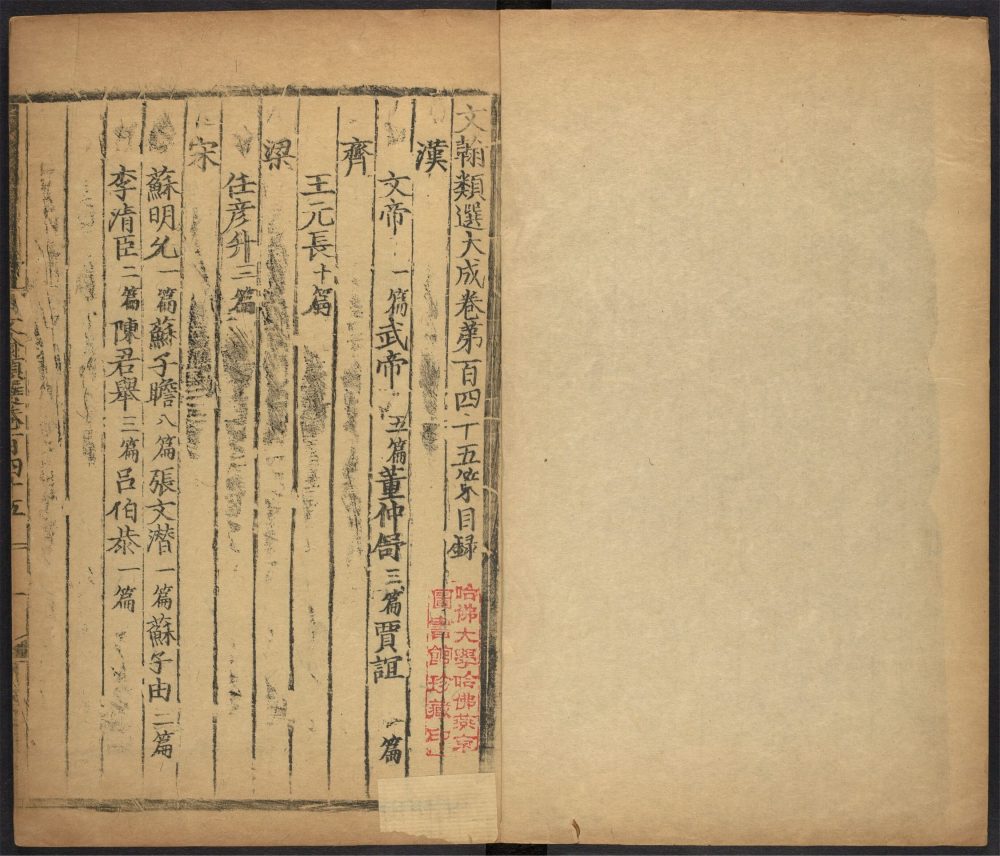 文翰類選大成卷第百四十五策目録
漢
文帝 一篇 武帝 五篇 董仲舒 三篇 賈誼 一篇
齊
王元長 十篇
梁
任彦升 三篇
宋
蘇明允 一篇 蘇子瞻 八篇 張文潛 一篇 蘇子由 二篇
李清臣 二篇 陳君舉 三篇 吕伯恭 一篇
文翰類選卷百四五
哈佛大學哈佛燕京
圖書館珍藏印